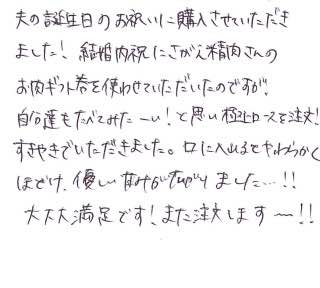 夫の誕生日のお祝いに購入させていただき
ました！結婚内祝にさがえ精肉さんの
お肉ギフト券を使わせていただいたのですが、
自分達もたべてみたーい！と思い極上ロースを注文！
すきやきでいただきました。口に入れるとやわらかく
ほどけ、優しい甘みがひろがりました…!!
大大大満足です！また注文します〜!!